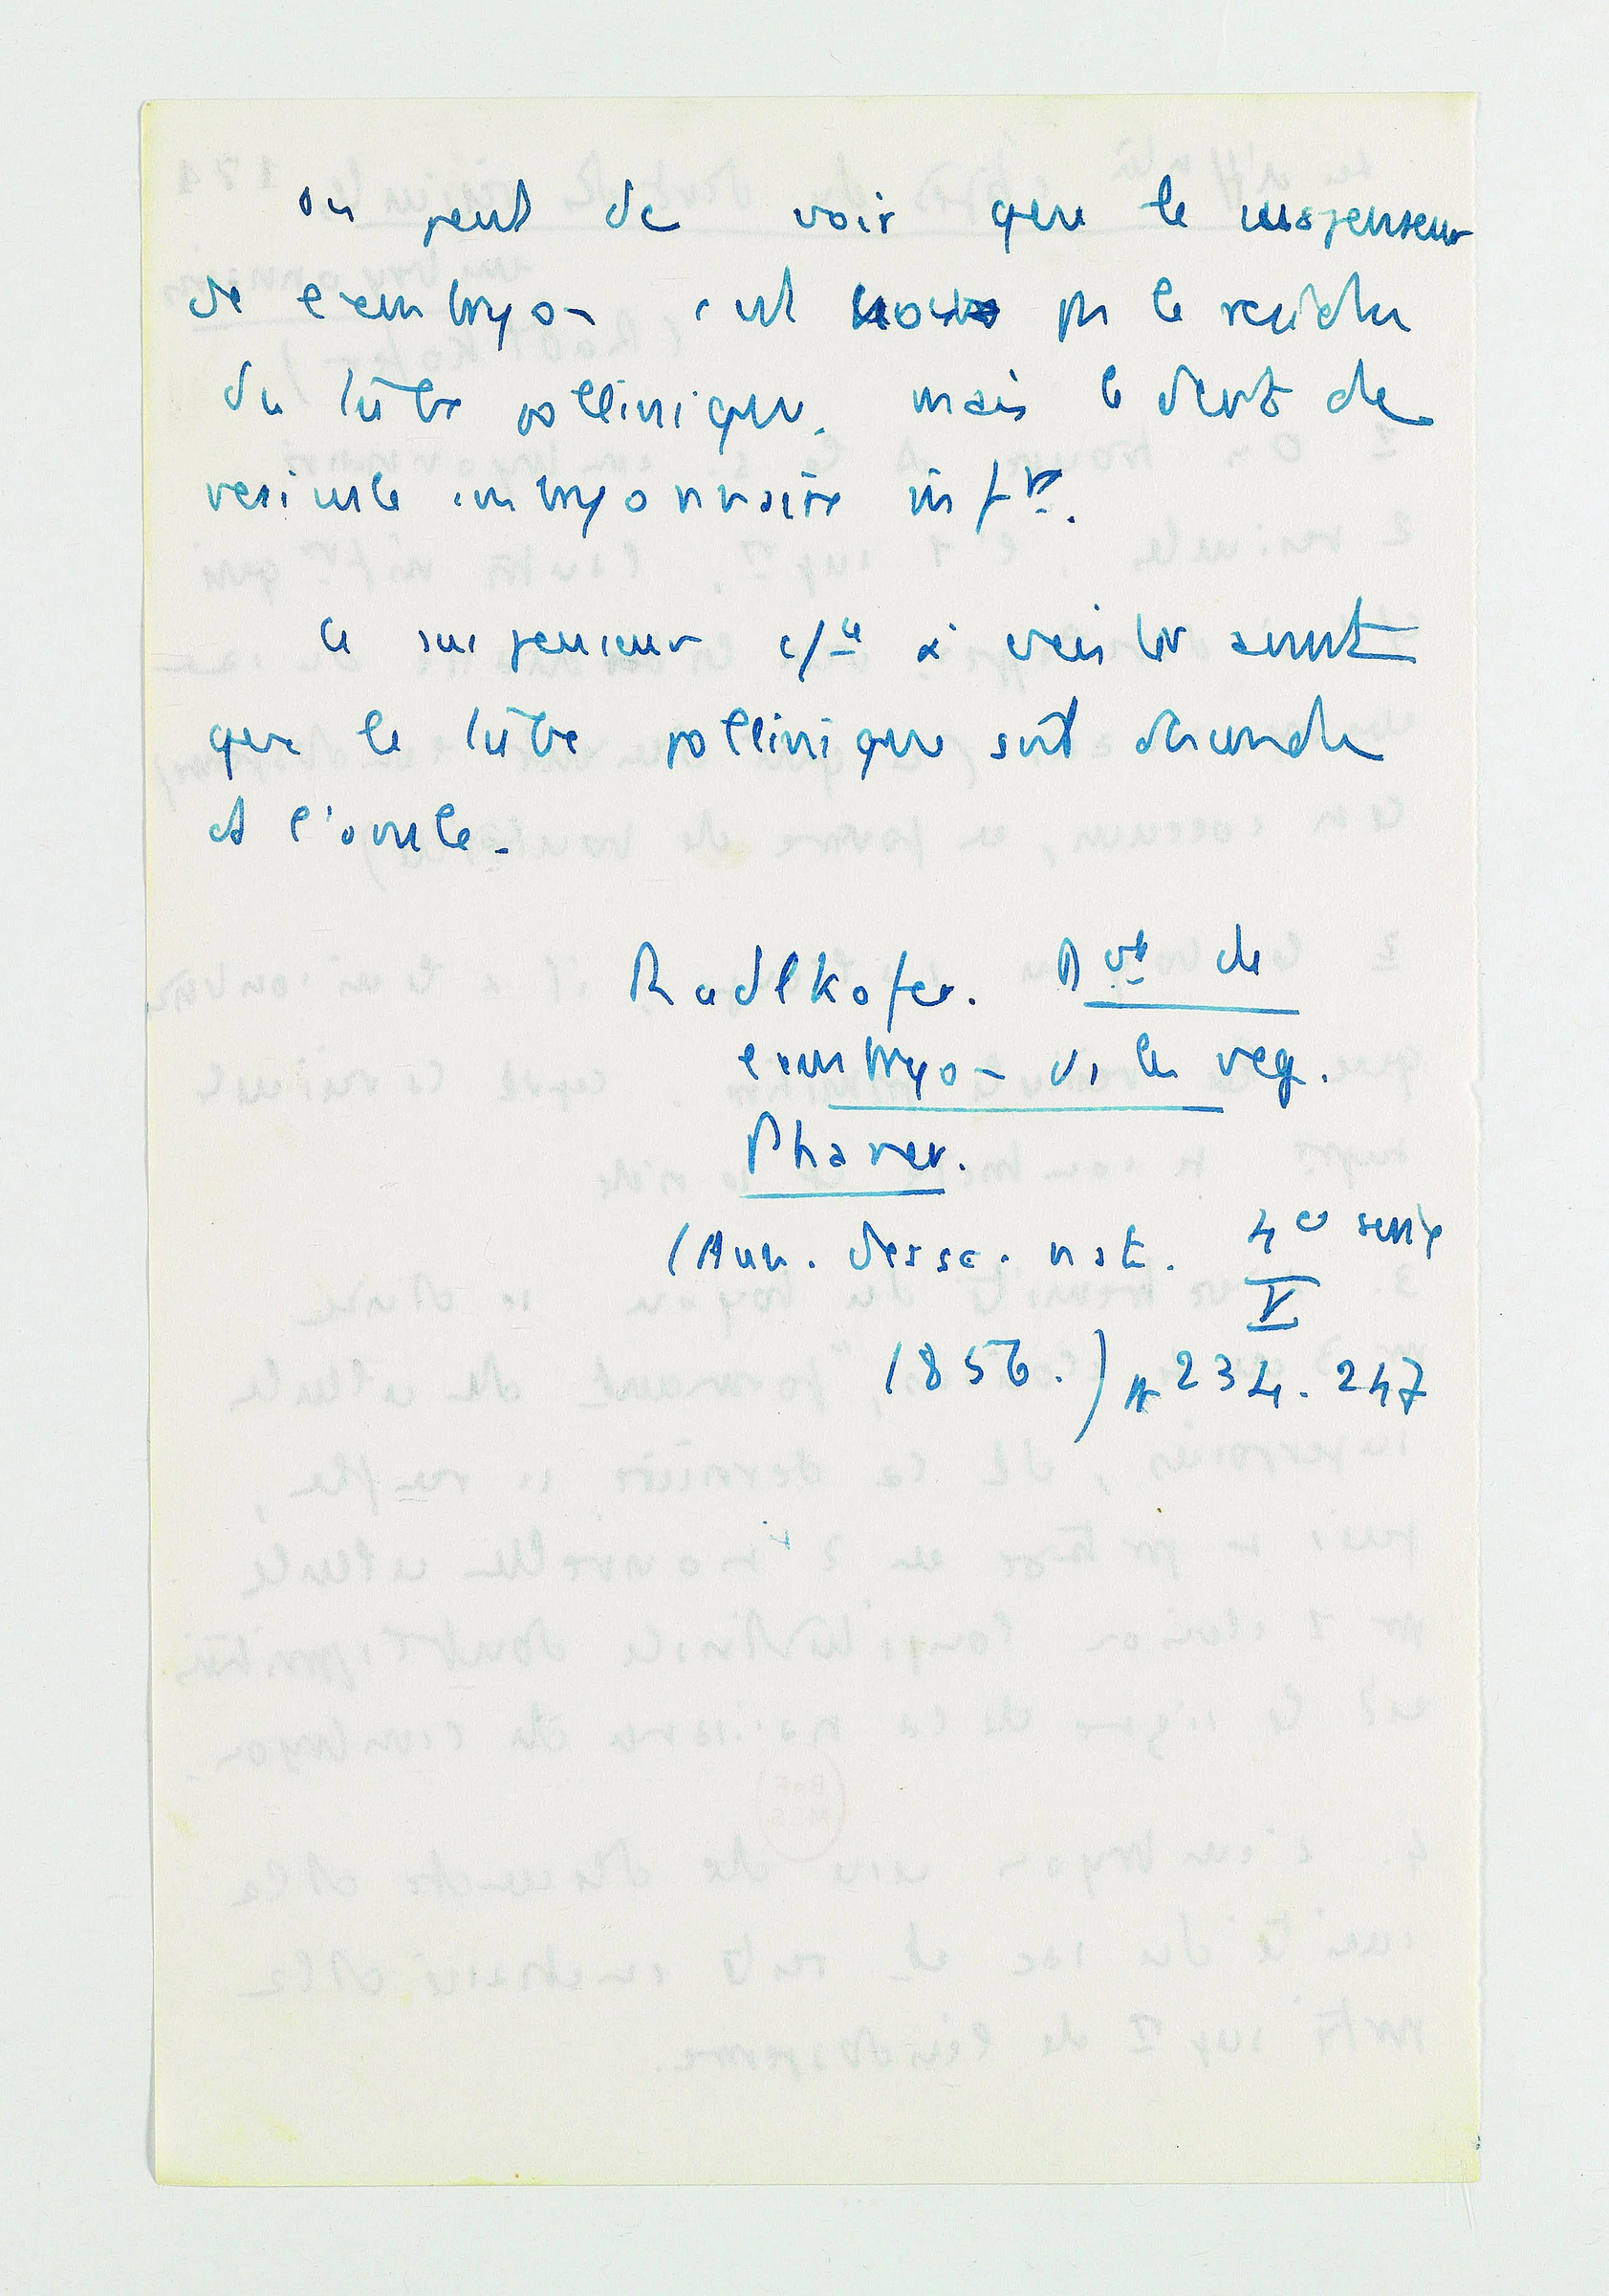 on peut dc voir que le suspenseur
de l'embryon est pas le résidu
du tube pollinique, mais le devt de
vesicule embryonnaire infre.
le suspenseur à exister avant
que le tube pollinique soit descendu
ds l'ovule.
Radlkofer. Dvt de
l'embryon ds les veg.
Phaner.
(Ann. des sc. nat. 4e serie
V
1856.) p 234. 247